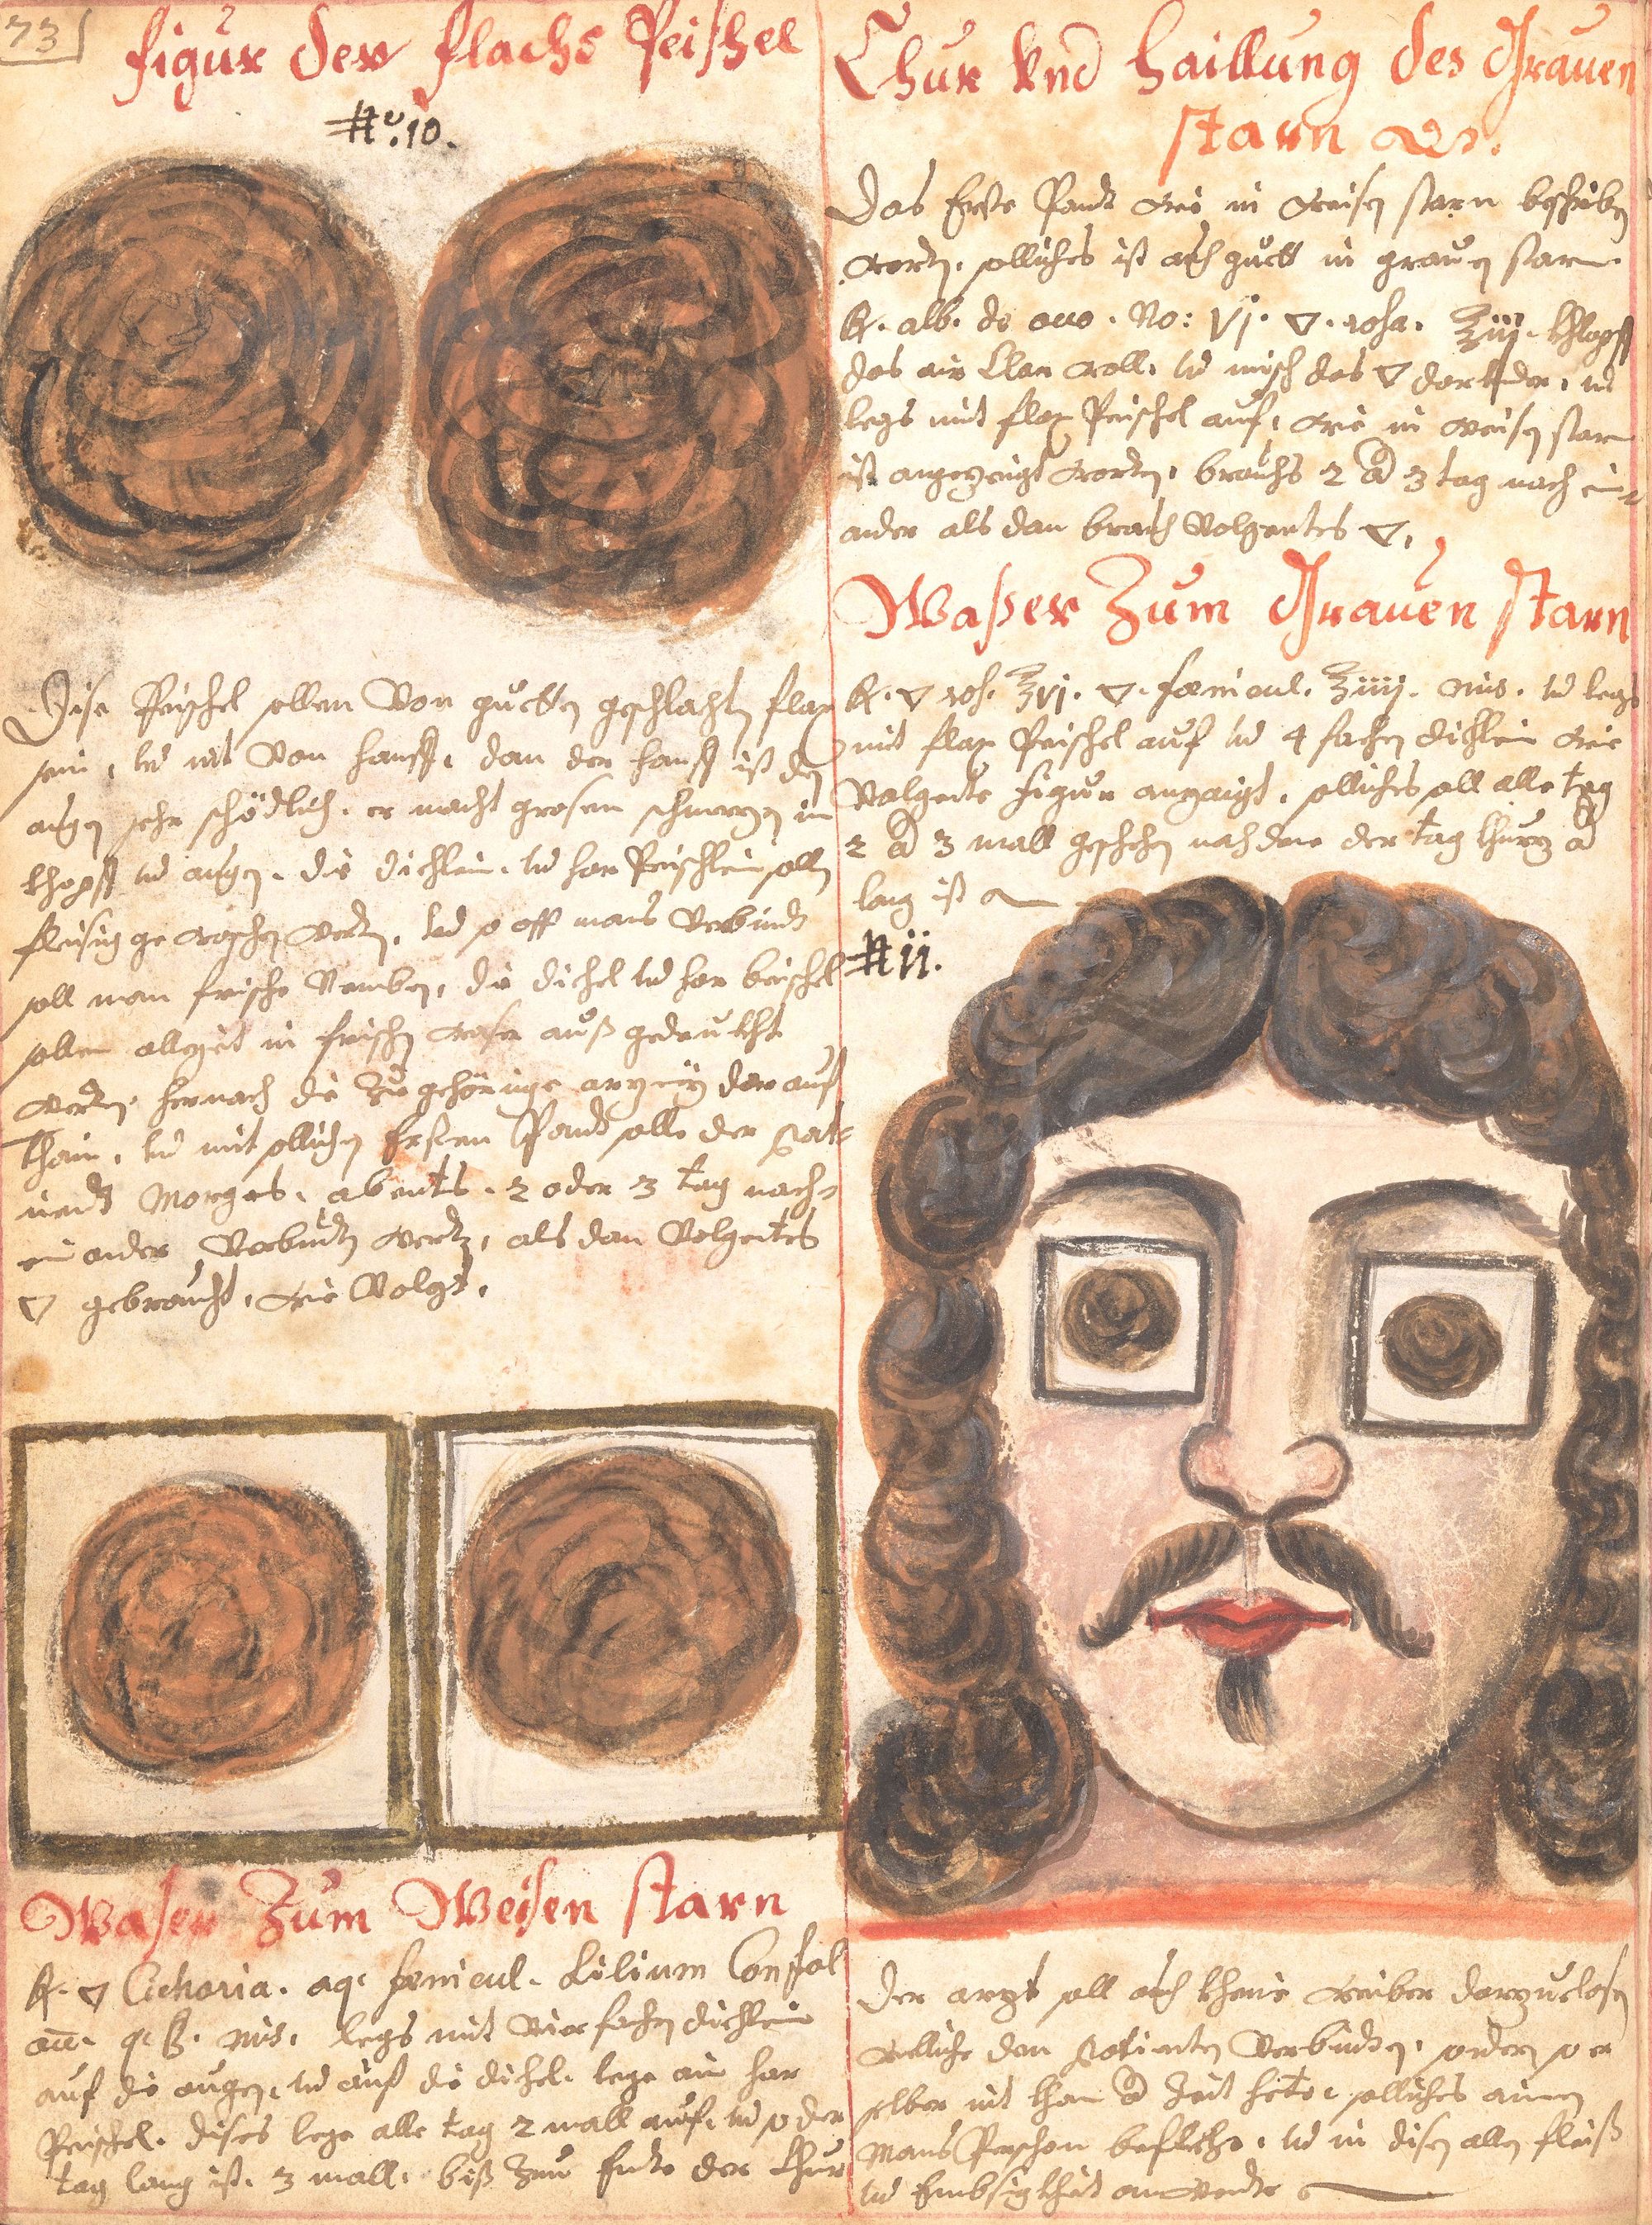 73
figur der flachs Peischel
No. 10.
Dise Peischel sollen Von guetten geschlachten flax
sein, vnd nit Von hanff, dan der hanff ist den
augen sehr schödlich. er macht grosen schmerzen im
khopff vnd augen. die dichlein. vnd har Peischlein sollen
fleisig ge waschen werden. vnd so offt mans Verbindt
soll man frische Nemben, die dichel vnd har beischel
sollen allezeit in frischen waser auß gedrukht
werden. hernach die Zue gehörige arzney dar auf
thain, vnd mit sollichen Ersten Pandt solle der pati-
endt Morgens. abents. 2 oder 3 tag nach-
ein ander Verbunden werden, als dan Volgentes
▽ gebraucht, wie Volgt.
Waser Zum Weisen starn
℞. ▽ Cichoria. aq. fœnicul. Lilium Conffal
ana. q. ß. mis. legs mit Vier fachen dichlein
auf die augen, vnd auf die dichel. lege ain har
Peischel. dises lege alle tag 2 mall auf. vnd so der
tag lang ist. 3 mall. biß Zum Ende der Chur
Chur Vnd haillung des Grauen
starn
Das Erste Pandt wie in weisen starn beschriben
worden. solliches ist auch guett in grauen starn.
℞. alb. de ovo. No: Vj. ▽. rosa. ℥iij. khlopff
das air klar woll. vnd misch das ▽ darunder, vnd
legs mit flax Peischel auf, wie in weisen starn
ist angezeigt worden, brauchs 2 od 3 tag nach ein-
ander als dan brauch Volgentes ▽.
Waßer Zum Grauen Starn
℞. ▽ ros. ℥vj. ▽. fœnicul. ℥iiij. mis. vnd legs
mit flax Peischel auf vnd 4 fachen dichlein wie
Volgente figur anzaigt. solliches soll alle tag
2 od 3 mall geschehen nach deme der tag khurz od
lang ist
No 11.
Der arzt soll auch kheine weiber darzue lasen
welliche den patienten Verbinden, sondern so er
selber nit khan od Zeit hete. solliches ainen
Mans Perschon befelche, vnd in disen allen fleiß
vnd Embsigkheit an wende